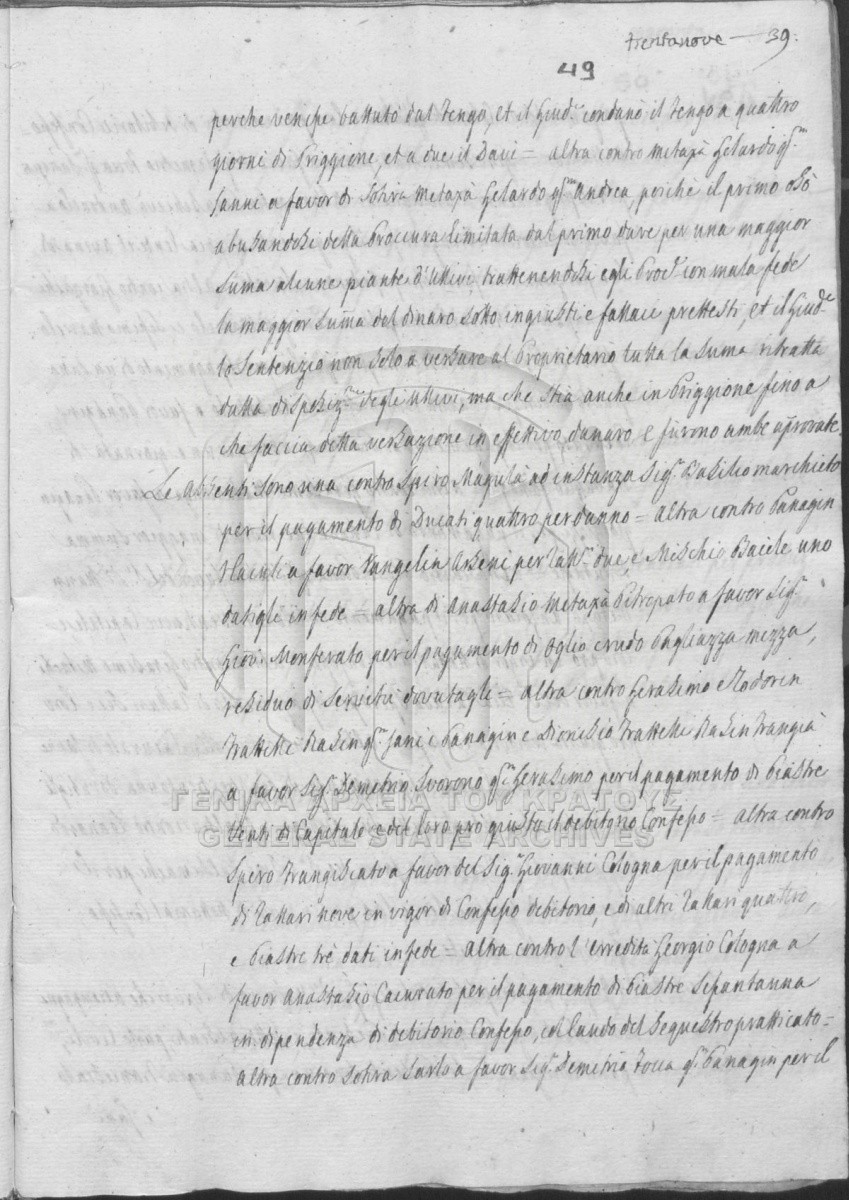 trentanove — 39.
49
perche venisse battuto dal Zengo, et il Giud.e condanò il Zengo a quattro
giorni di Priggione, et a due il Davi = altra contro Metaxà Gerardo q.m
Janni a favor di Sotira Metaxà Gerardo q.m Andrea, perchè il primo osò
abusandosi della Proccura limitata dal primo dare per una maggior
suma alcune piante d'Ullivi, trattenendosi egli Proc.r con mala fede
la maggior suma del dinaro sotto ingiusti e fallaci prettesti, et il Giud.e
lo sentenziò non solo a versare al Proprietario tutta la suma ritratta
dalla disposiz.ne degli Ullivi, ma che stia anche in Priggione fino a
che faccia detta versazione in effettivo danaro, e furono ambe approvate.
Le Assenti sono una contro Spiro Magulà ad instanza Sig.r Basilio Marchieto
per il pagamento di Ducati quattro per danno = altra contro Panagin
a favor Vangelin Arseni per Tall.i due, e Mischio Bacile uno
datigli in fede = altra di Anastasio Metaxà Pitropato a favor Sig.r
Giov. Monferato per il pagamento di Oglio crudo Pagliazza mezza,
residuo di servitù dovutagli = altra contro Gerasimo e Todorin
Frattelli Rasin q.m Jani e Panagin e Dionisio Frattelli Rasin Frangià
a favor Sig.r Demetrio Svorono q.m Gerasimo per il pagamento di Piastre
Venti di Capitale e del loro prò giusto il debitorio Confesso = altra contro
Spiro Frangiscato a favor del Sig.r Giovanni Cologna per il pagamento
di Tallari nove in vigor di Confesso debitorio, e di altri Tallari quattro,
e Piastre trè dati in fede = altra contro l'erredità Georgio Cologna a
favor Anastasio Cacurato per il pagamento di Piastre Sessantauna
in dipendenza di debitorio Confesso, col laudo del sequestro pratticato =
altra contro Sotira Sarlo a favor Sig.r Demetrio Focca q.m Panagin per il
ΓΕΝΙΚΑ ΑΡΧΕΙΑ ΤΟΥ ΚΡΑΤΟΥΣ
GENERAL STATE ARCHIVES